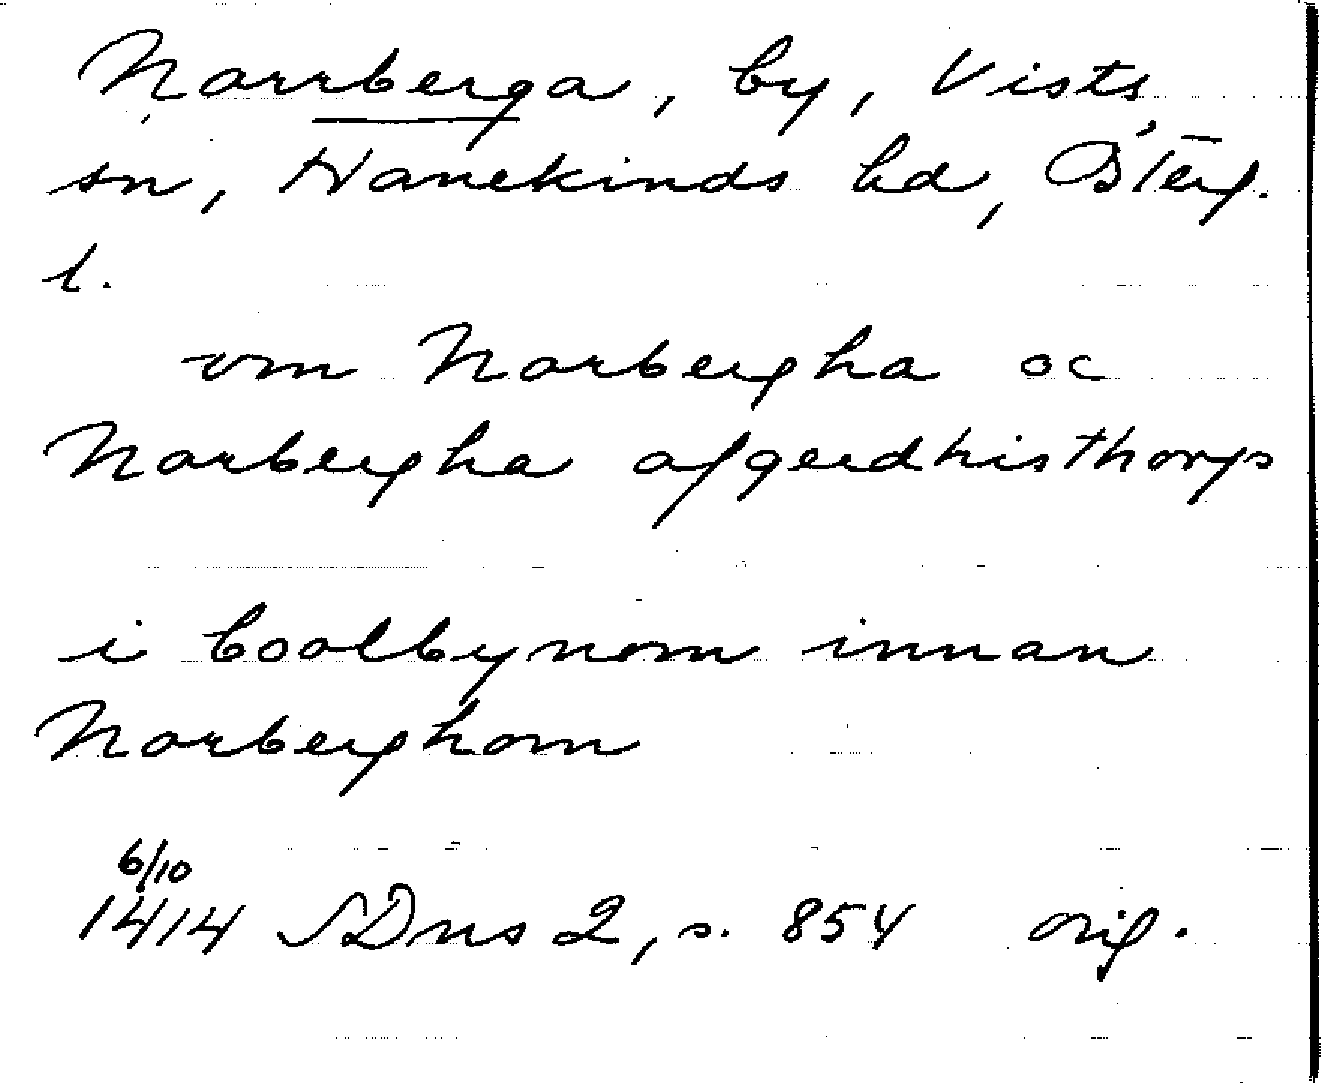 Narrberga, by, Vists
sn, Hanekinds hd, Ö'terg.
l.
om Norbergha oc
Norbergha afgerdhisthorps
i boolbynom innan
Norberghom
6/10
1414 SDns 2, s. 854 orig.